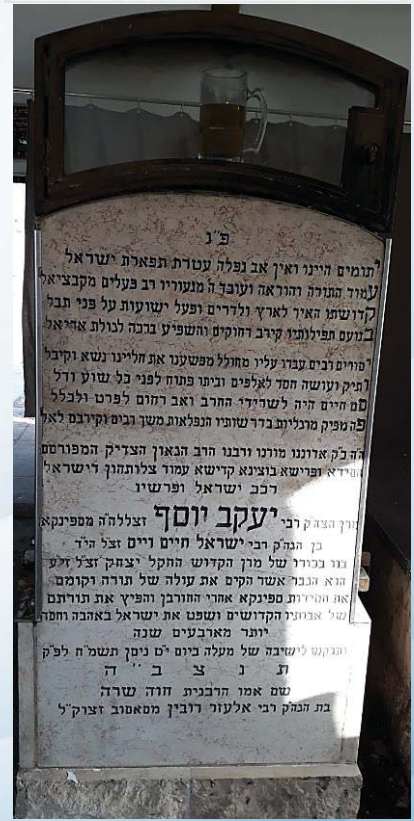 פ"נ
יתומים היינו ואין אב נפלה עטרת תפארת ישראל
עמוד התורה והוראה ועובד ה' מנעוריו רב פעלים מקבציאל
קדושתו האיר לארץ ולדרים ופעל ישועות על פני תבל
בנועם תפילותיו קירב רחוקים והשפיע ברכה לגולת אריאל
יסורים רבים עברו עליו מחולל מפשענו את חליינו נשא וקיבל
ותיק ועושה חסד לאלפים וביתו פתוח לפני כל שוע ודל
סם חיים היה לשרידי החרב ואב רחום לפרט ולכלל
פה מפיק מרגליות בדרשותיו הנפלאות משך רבים וקירבם לאל
ה"ה כ"ק אדוננו מורנו ורבנו הרב הגאון הצדיק המפורסם
חסידא ופרישא בוצינא קדישא עמוד צלותהון דישראל
רכב ישראל ופרשיו
מרן הצה"ק רבי יעקב יוסף זצללה"ה מספינקא
בן הגה"ק רבי ישראל חיים וייס זצ"ל הי"ד
בנו בכורו של מרן הקדוש החקל יצחק זצ"ל זיע"א
הוא הגבר אשר הקים את עולה של תורה וקומם
את חסידות ספינקא אחרי החורבן והפיץ את תורתם
של אבותיו הקדושים ושפט את ישראל באהבה וחסד
יותר מארבעים שנה
ונתבקש לישיבה של מעלה ביום י"ט ניסן תשמ"ח לפ"ק
ת נ צ ב" ה
שם אמו הרבנית חוה שרה
בת הגה"ק רבי אלעזר רובין מסאסוב זצוק"ל